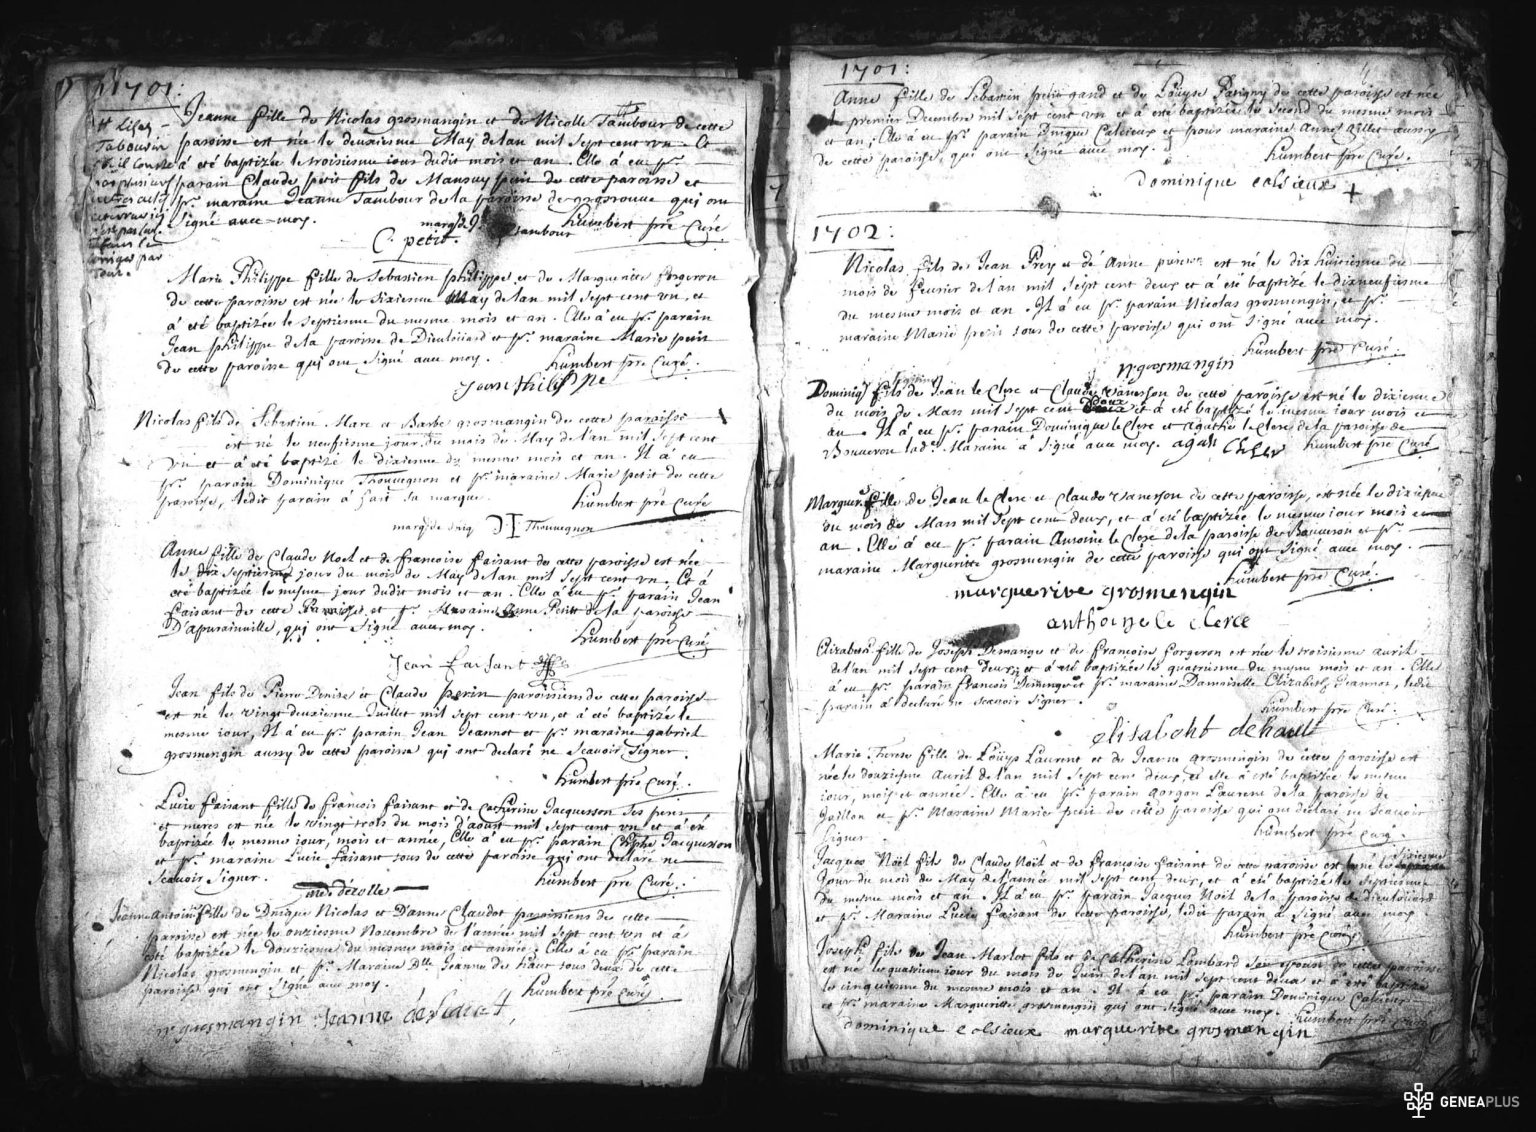 1701:
Jeanne fille de Nicolas grosmangin et de Nicolle Tambour de cette
paroisse est née le deuxiesme May de lan mil sept cent un. Et
à été baptizée le troisiesme iour dudit mois et an. Elle à eu pr.
parain Claude petit fils de Mansuy petit de cette paroisse et
pr. maraine Jeanne Tambour de la paroisse de grosrouue qui ont
signé auec moy.
humbert prê Curé
C. petit.
tambour
Marie Philippe fille de Sebastien philippe et de Margueritte forgeron
de cette paroisse est née le sixiesme May de lan mil sept cent un, et
à été baptizée le septiesme du mesme mois et an. Elle à eu pr. parain
Jean philippe de la paroisse de Dieulouard et pr. maraine Marie petit
de cette paroisse qui ont signé auec moy.
humbert prê Curé.
Jean Philippe
Nicolas fils de Sebastien Marc et Barbe grosmangin de cette paroisse
est né le neufiesme jour du mois de May de lan mil sept cent
un et à été baptizé le dixiesme du mesme mois et an. Il à eu
pr. parain Dominique Thouuegnon et pr. maraine Marie petit de cette
paroisse, ledit parain à fait sa marque.
humbert prê Curé
Thouuegnon
Anne fille de Claude Noel et de francoise faisant de cette paroisse est née
le dix septiesme jour du mois de May de lan mil sept cent un. Et à
été baptizée le mesme jour dudit mois et an. Elle à eu pr. parain Jean
faisant de cette Paroisse et pr. Maraine Anne Petitt de la paroisse
D'apurainuille, qui ont signé auec moy.
humbert prê Curé
Jean faisant
Jean fils de Pierre Denise et Claude perin paroissiens de cette paroisse
est né le vingt deuxiesme Juillet mil sept cent un, et à été baptizé le
mesme jour, Il à eu pr. parain Jean Jeannot et pr. maraine gabriel
grosmengin aussy de cette paroisse qui ont declaré ne scauoir signer.
humbert prê Curé.
Lucie faisant fille de francois faisant et de Catherine Jacquesson ses peres
et meres est née le vingt trois du mois d'aoust mil sept cent un et à été
baptizée le mesme jour, mois et année, Elle à eu pr. parain Jacquesson
et pr. maraine Lucie faisant tous de cette paroisse qui ont declaré ne
scauoir signer.
humbert prê Curé.
Jeanne Antoinne fille de Nicolas et D'anne Claudot paroissiens de cette
paroisse est née le onziesme Nouembre de l'année mil sept cent un et à
été baptizée le douziesme du mesme mois et année. Elle à eu pr. parain
Nicolas grosmengin et pr. Maraine Dlle Jeanne de haut tous deux de cette
paroisse qui ont signé auec moy.
humbert prê Curé.
n. grosmangin Jeanne dehault
1701:
Anne fille de Sebastien petit gand et de Louyse Parigny de cette paroisse est née
le premier Decembre mil sept cent un et à été baptizée le second du mesme mois
et an; Elle à eu pr. parain Calcieux et pour maraine Anne Rillet aussy
de cette paroisse, qui ont signé auec moy.
humbert prê Curé.
Dominique calsieux
1702:
Nicolas fils de Jean Prey et de Anne est né le dix huitiesme du
mois de feurier de lan mil sept cent deux et à été baptizé le dixneufiesme
du mesme mois et an. Il à eu pr. parain Nicolas grosmengin, et pr.
maraine Marie petit tous de cette paroisse qui ont signé auec moy.
humbert prê Curé.
N grosmangin
Dominiq fils de Jean le Clerc et Claude Vanesson de cette paroisse est né le dixiesme
du mois de Mars mil sept cent deux et à été baptizé le mesme iour mois et
an. Il à eu pr. parain Dominique le Clerc et Agathe le Clerc de la paroisse de
Bouueron lad. Maraine à signé auec moy.
humbert prê Curé
fille de Jean le Clerc et Claude Vanesson de cette paroisse, est née le dixiesme
du mois de Mars mil sept cent deux, et à été baptizée le mesme iour mois et
an. Elle à eu pr. parain Antoine le Clerc de la paroisse de Bouueron et pr.
maraine Margueritte grosmengin de cette paroisse qui ont signé auec moy.
humbert prê Curé.
marguerite grosmengin
anthoine le clerce
Elizabeth fille de Joseph Demange et de francoise forgeron est née le troisiesme auril
de lan mil sept cent deux et à été baptizée le quatriesme du mesme mois et an. Elle
à eu pr. parain francois Demenge et pr. maraine Damoiselle Elizabeth Jeannot, ledit
parain à declaré ne scauoir signer.
humbert prê Curé.
elisabeht dehault
Marie Therese fille de Louys Laurent et de Jeanne grosmengin de cette paroisse est
née le douziesme Auril de lan mil sept cent deux et elle à été baptizée le mesme
iour, mois et année. Elle à eu pr. parain gorgon Laurent de la paroisse de
Jaillon et pr. Maraine Marie petit de cette paroisse qui ont declaré ne scauoir
signer.
humbert prê Curé.
Jacques Noël fils de Claude Noël et de francoise faisant de cette paroisse est né le sixiesme
Jour du mois de May de l'année mil sept cent deux, et à été baptizé le septiesme
du mesme mois et an. Il à eu pr. parain Jacques Noël de la paroisse de dieulouard
et pr. Maraine Lucie faisant de cette paroisse, ledit parain à signé auec moy
humbert prê Curé.
Joseph fils de Jean Marlot fils et de Catherine Lombard son epouse de cette paroisse
est né le quatrieme jour du mois de Juin de lan mil sept cent deux et à été baptizé
le cinquiesme du mesme mois et an. Il à eu pr. parain Dominique Calcieux
et pr. maraine Margueritte grosmengin qui ont signé auec moy.
humbert prê Curé
dominique calsieux marguerite grosmangin
GENEAPLUS